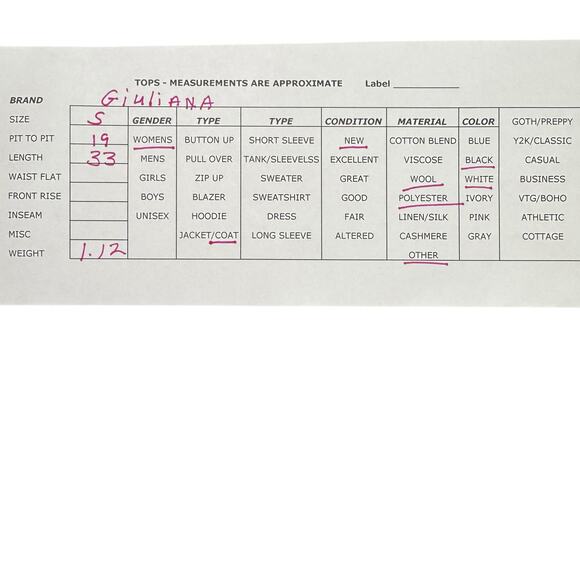 TOPS - MEASUREMENTS ARE APPROXIMATE Label
BRAND GiuliANA
SIZE S GENDER TYPE TYPE CONDITION MATERIAL COLOR GOTH/PREPPY
PIT TO PIT 19 WOMENS BUTTON UP SHORT SLEEVE NEW COTTON BLEND BLUE Y2K/CLASSIC
LENGTH 33 MENS PULL OVER TANK/SLEEVELSS EXCELLENT VISCOSE BLACK CASUAL
WAIST FLAT GIRLS ZIP UP SWEATER GREAT WOOL WHITE BUSINESS
FRONT RISE BOYS BLAZER SWEATSHIRT GOOD POLYESTER IVORY VTG/BOHO
INSEAM UNISEX HOODIE DRESS FAIR LINEN/SILK PINK ATHLETIC
MISC JACKET/COAT LONG SLEEVE ALTERED CASHMERE GRAY COTTAGE
WEIGHT 1.12 OTHER